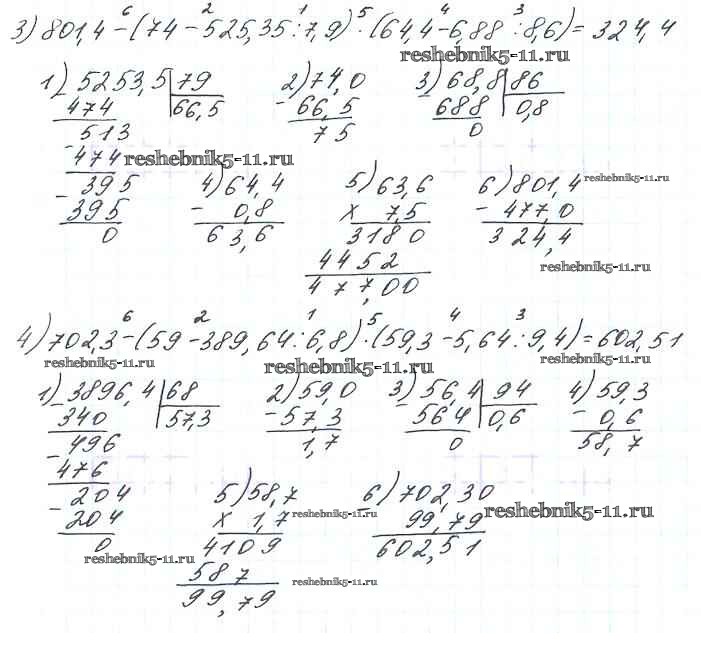 3) 801,4 − (74 − 525,35 : 7,9) · (64,4 − 6,88 : 8,6) = 324,4
6 2 1 5 4 3
reshebnik5-11.ru
1) 5253,5 | 79 2) 74,0 3) 68,8 | 86
474 66,5 − 66,5 − 688 0,8
513 7,5 0
− 474 reshebnik5-11.ru
− 395 4) 64,4 5) 63,6 6) 801,4 reshebnik5-11.ru
395 − 0,8 × 7,5 − 477,0
0 63,6 3180 324,4
4452 reshebnik5-11.ru
477,00
6 2 1 5 4 3
4) 702,3 − (59 − 389,64 : 6,8) · (59,3 − 5,64 : 9,4) = 602,51
reshebnik5-11.ru reshebnik5-11.ru reshebnik5-11.ru
1) 3896,4 | 68 2) 59,0 3) 56,4 | 94 4) 59,3
− 340 57,3 − 57,3 − 564 0,6 − 0,6
− 496 1,7 0 58,7
476
− 204 5) 58,7 6) 702,30
204 × 1,7 reshebnik5-11.ru 99,79 reshebnik5-11.ru
0 4109 602,51
reshebnik5-11.ru 587 reshebnik5-11.ru
99,79